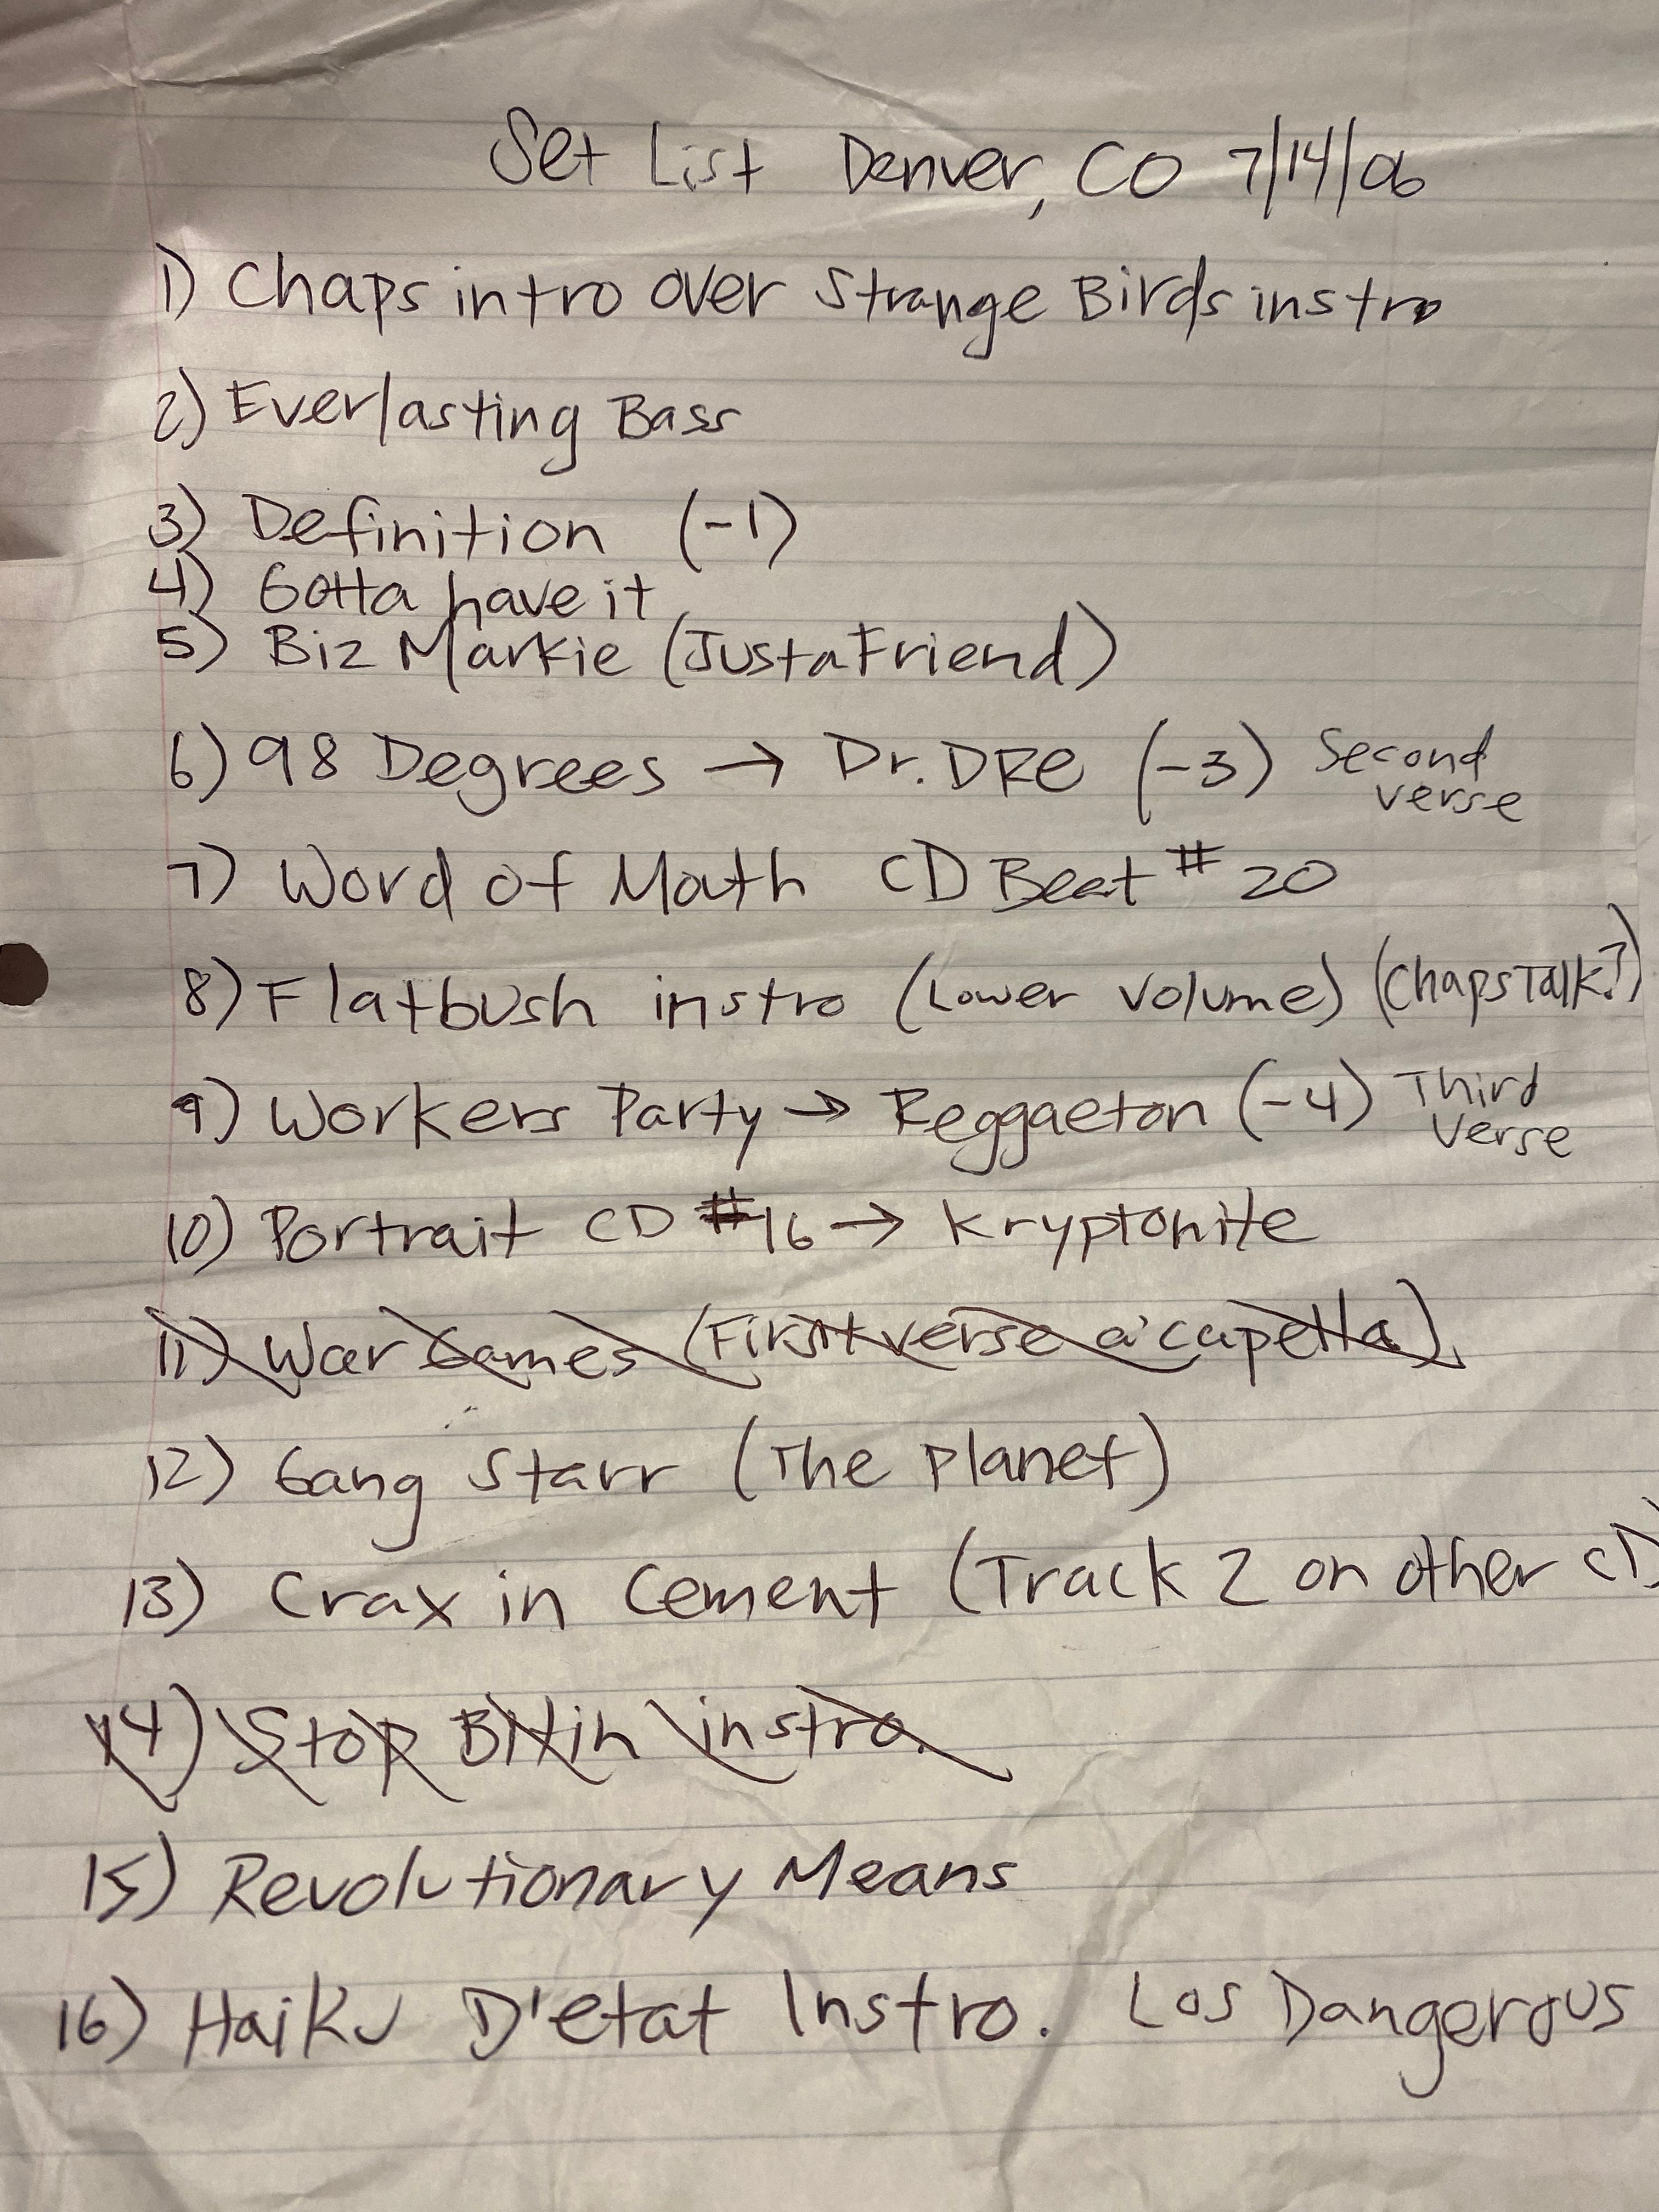 Set List Denver, CO 7/14/06
1) Chaps intro over Strange Birds instro
2) Everlasting Bass
3) Definition (-1)
4) Gotta have it
5) Biz Markie (Just a Friend)
6) 98 Degrees → Dr. DRE (-3) Second verse
7) Word of Math CD Beat # 20
8) Flatbush instro (Lower volume) (Chaps Talk?)
9) Workers Party → Reggaeton (-4) Third Verse
10) Portrait CD #16 → Kryptonite
11) War Games (First verse a'capella)
12) Gang Starr (The planet)
13) Crax in Cement (Track 2 on other CD)
14) Stop Bitin instro.
15) Revolutionary Means
16) Haiku D'etat Instro. Los Dangerous